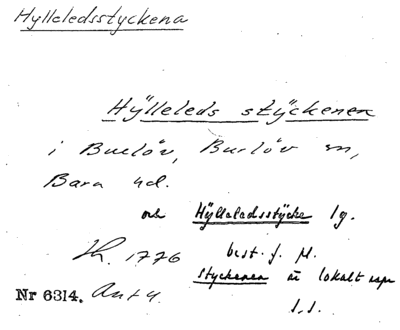 Hylleledsstyckena
Hÿlleleds stÿckenen
i Burlöv, Burlöv sn,
Bara hd.
och Hÿlleledsstÿcke lg.
Lh. 1776 best. f. pl.
styckenen är lokalt uppr
Nr 6314. Ant 4 s.s.